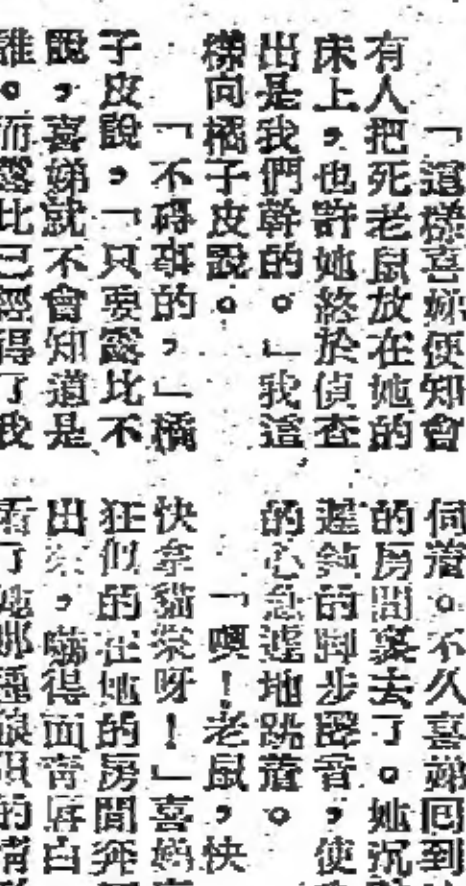 「這樣喜娣便知會
有人把死老鼠放在她的
床上，也許她終於偵查
出是我們幹的。」我這
樣向橘子皮說。
「不碍事的，」橘
子皮說，「只要露比不
說，喜娣就不會知道是
誰。而露比已經得了我
伺着。不久喜娣回到
的房間裏去了。她沉
的脚步聲音，使
的心急遽地跳着。
「噢！老鼠，快
快拿貓來呀！」喜娣
狂似的在她的房間奔
出來，嚇得面青唇白
看了她那種